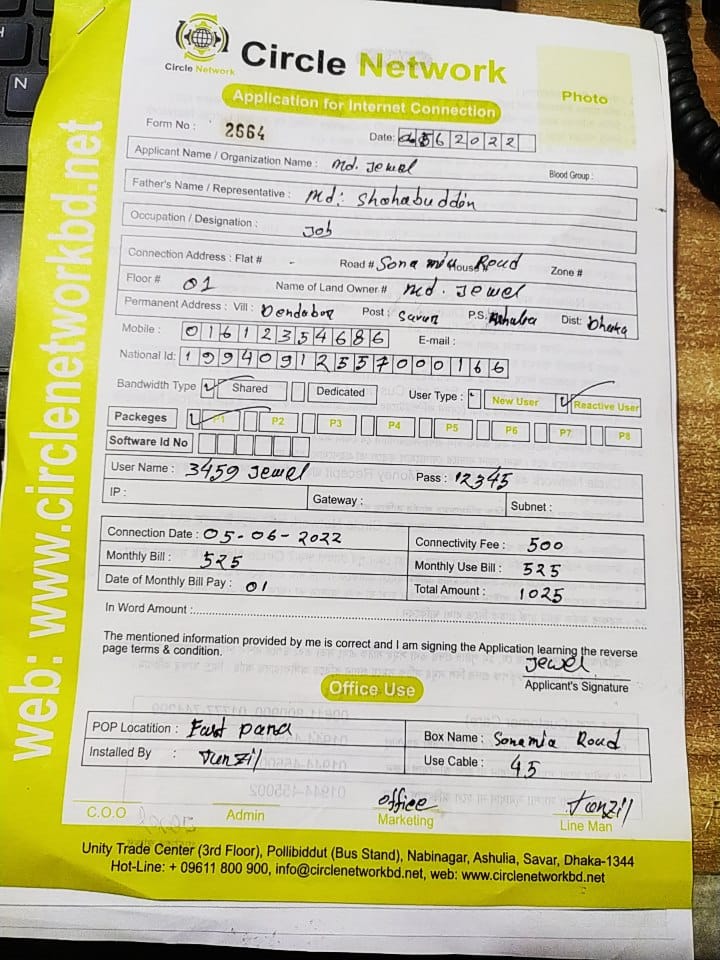 Circle Network
Circle Network
Application for Internet Connection
Photo
Form No : 2664
Date: 0562022
Applicant Name / Organization Name : Md. Jewel Blood Group :
Father's Name / Representative : Md: Shahabuddin
Occupation / Designation : Job
Connection Address : Flat # - Road # Sona mia Road House # Zone #
Floor # 01 Name of Land Owner # Md. Jewel
Permanent Address : Vill : Dendabor Post : Savar P.S. Ashulia Dist: Dhaka
Mobile : 01612354686 E-mail :
National Id: 19940912557000166
Bandwidth Type Shared Dedicated User Type : New User Reactive User
Packeges P1 P2 P3 P4 P5 P6 P7 P8
Software Id No
User Name : 3459 Jewel Pass : 12345
IP : Gateway : Subnet :
Connection Date : 05-06-2022 Connectivity Fee : 500
Monthly Bill : 525 Monthly Use Bill : 525
Date of Monthly Bill Pay : 01 Total Amount : 1025
In Word Amount :
The mentioned information provided by me is correct and I am signing the Application learning the reverse
page terms & condition.
Jewel
Applicant's Signature
Office Use
POP Locatition : East para Box Name : Sonamia Road
Installed By : Tunzil Use Cable : 45
office Tanzil
C.O.O Admin Marketing Line Man
Unity Trade Center (3rd Floor), Pollibiddut (Bus Stand), Nabinagar, Ashulia, Savar, Dhaka-1344
Hot-Line: + 09611 800 900, info@circlenetworkbd.net, web: www.circlenetworkbd.net
web: www.circlenetworkbd.net
N